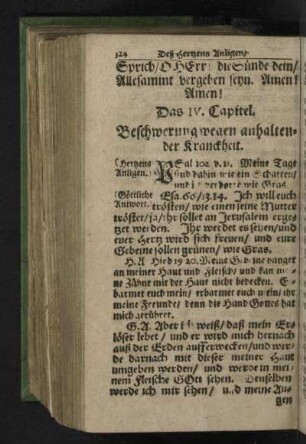 524 Deß Hertzens Anligen/
Sprich/ O HErr: die Sünde dein/
Allesammt vergeben seyn. Amen!
Amen!
Das IV. Capitel.
Beschwerung wegen anhalten-
der Kranckheit.
(Hertzens PSal 102 v. Meine Tage
Anligen.) sind dahin wie ein Schatten/
und verdorre wie Gras.
(Göttliche Esa. 66/13.14. Ich will euch
Antwort. trösten/ wie einen seine Mutter
tröstet/ ja/ ihr sollet an Jerusalem erge-
tzet werden. Ihr werdet es sehen/ und
euer Hertz wird sich freuen/ und eure
Gebeine sollen grünen/ wie Gras.
H. A Hiob 19 20. Mein Gebeine hanget
an meiner Haut und Fleisch/ und kan
ne Zähne mit der Haut nicht bedecken. E-
barmet euch mein/ erbarmet euch ein/ ihr
meine Freunde/ denn die Hand Gottes hat
mich gerühret.
G. A. Aber ich weiß/ daß mein Er-
löser lebet/ und er wird mich hernach
auß der Erden aufferwecken/ und wer-
de darnach mit dieser meiner Haut
umgeben werden/ und werde in mei-
nem Fleische GOtt sehen. Denselben
werde ich mir sehen/ und meine Au-
gen